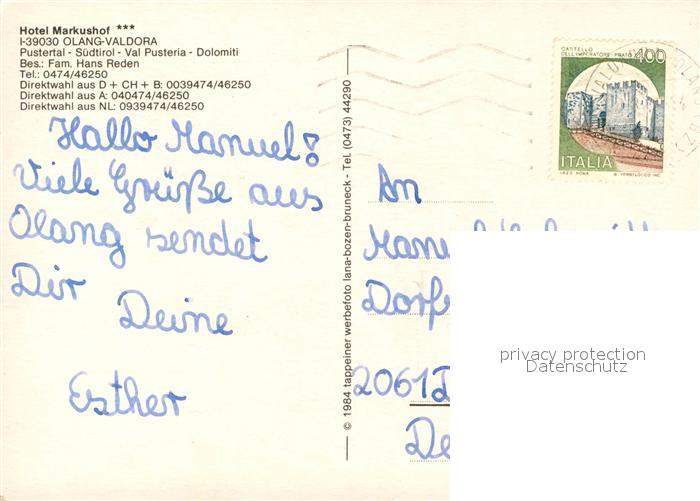 Hotel Markushof ***
I-39030 OLANG-VALDORA
Pustertal - Südtirol - Val Pusteria - Dolomiti
Bes.: Fam. Hans Reden
Tel.: 0474/46250
Direktwahl aus D + CH + B: 0039474/46250
Direktwahl aus A: 040474/46250
Direktwahl aus NL: 0939474/46250
Hallo Manuel!
Viele Grüße aus
Olang sendet
Dir Deine
Esther
© 1984 tappeiner werbefoto lana-bozen-bruneck - Tel. (0473) 44290
CASTELLO
DELL'IMPERATORE · PRATO
400
ITALIA
I.P.Z.S. ROMA
An
2061
privacy protection
Datenschutz